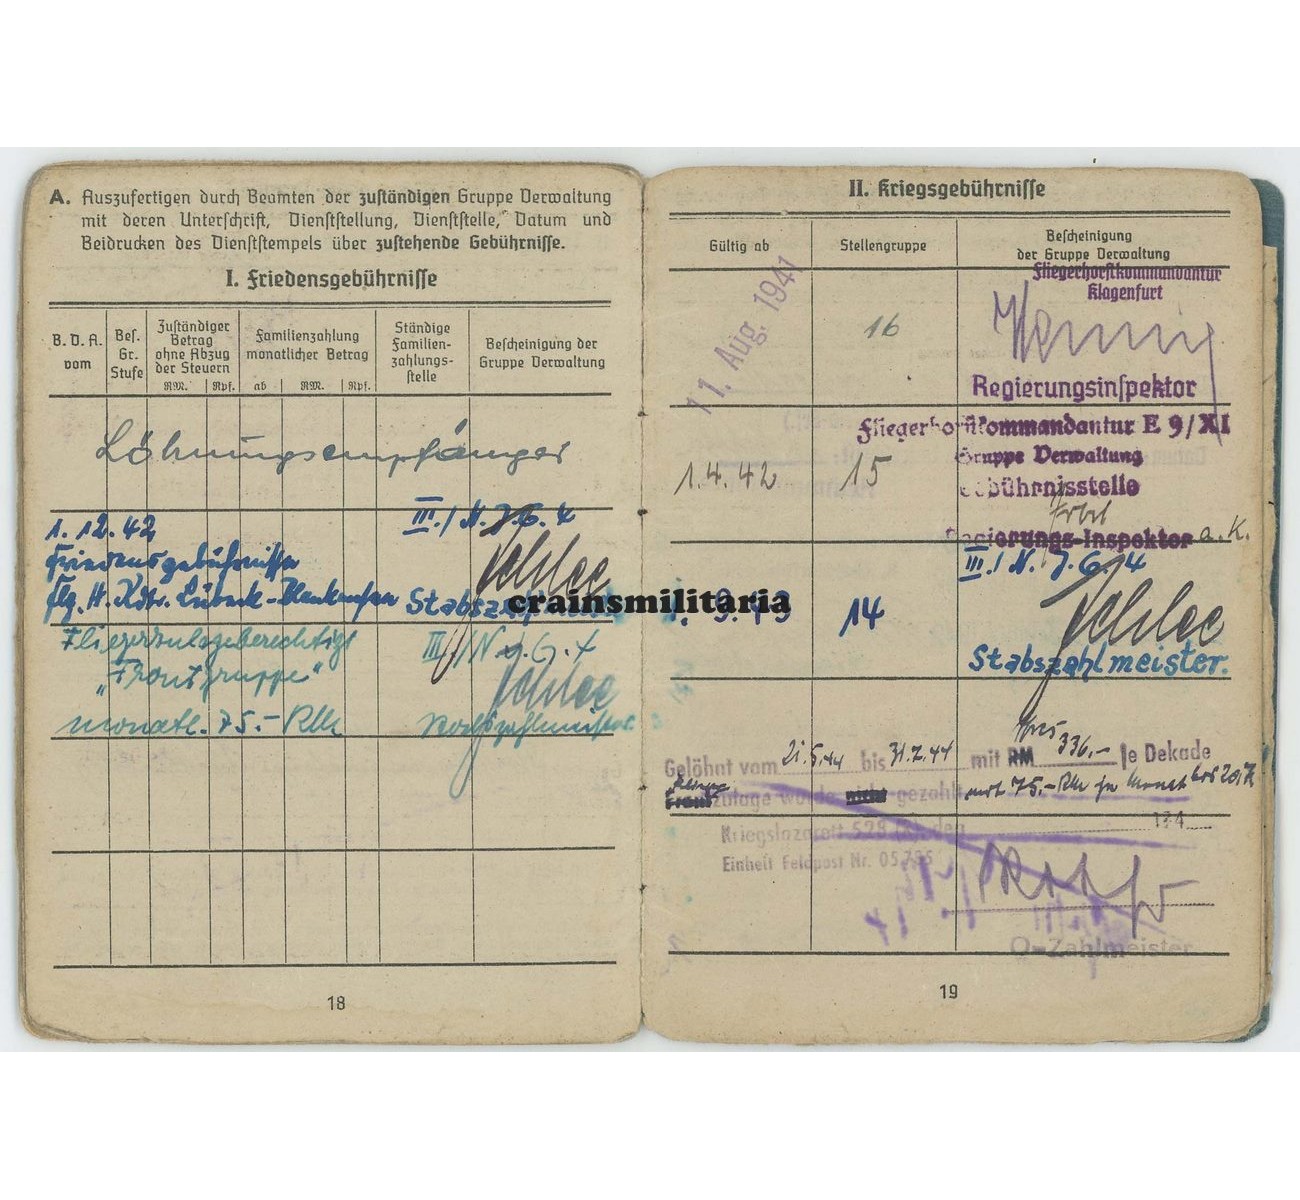 A. Auszufertigen durch Beamten der zuständigen Gruppe Verwaltung
mit deren Unterschrift, Dienststellung, Dienststelle, Datum und
Beidrucken des Dienststempels über zustehende Gebührnisse.
I. Friedensgebührnisse
B. D. A. vom
Bes. Gr. Stufe
Zuständiger Betrag ohne Abzug der Steuern
RM. Rpf.
Familienzahlung monatlicher Betrag
ab RM. Rpf.
Ständige Familien-zahlungs-stelle
Bescheinigung der Gruppe Verwaltung
Löhnungsempfänger
1. 12. 42 III./N.J.G. 4
Friedensgebührnisse
Flg. H. Kdtr. Lübeck-Blankensee Stabszahlmeister
Fliegerzulageberechtigt III./N.J.G. 4
"Frontgruppe"
monatl. 75.- RM
18
II. Kriegsgebührnisse
Gültig ab
Stellengruppe
Bescheinigung
der Gruppe Verwaltung
Fliegerhorstkommandantur
Klagenfurt
11. Aug. 1941 16
Regierungsinspektor
Fliegerhorstkommandantur E 9/XI
Gruppe Verwaltung
1.4.42 15 Gebührnisstelle
Regierungs-Inspektor a.K.
III./N.J.G. 4
1. 9. 43 14
Stabszahlmeister.
Gelöhnt vom 21.5.44 bis 31.7.44 mit RM 336,- je Dekade
zulage wurde gezahlt mit 75.- RM
Kriegslazarett
Einheit Feldpost Nr.
194
O-Zahlmeister
19
crainsmilitaria